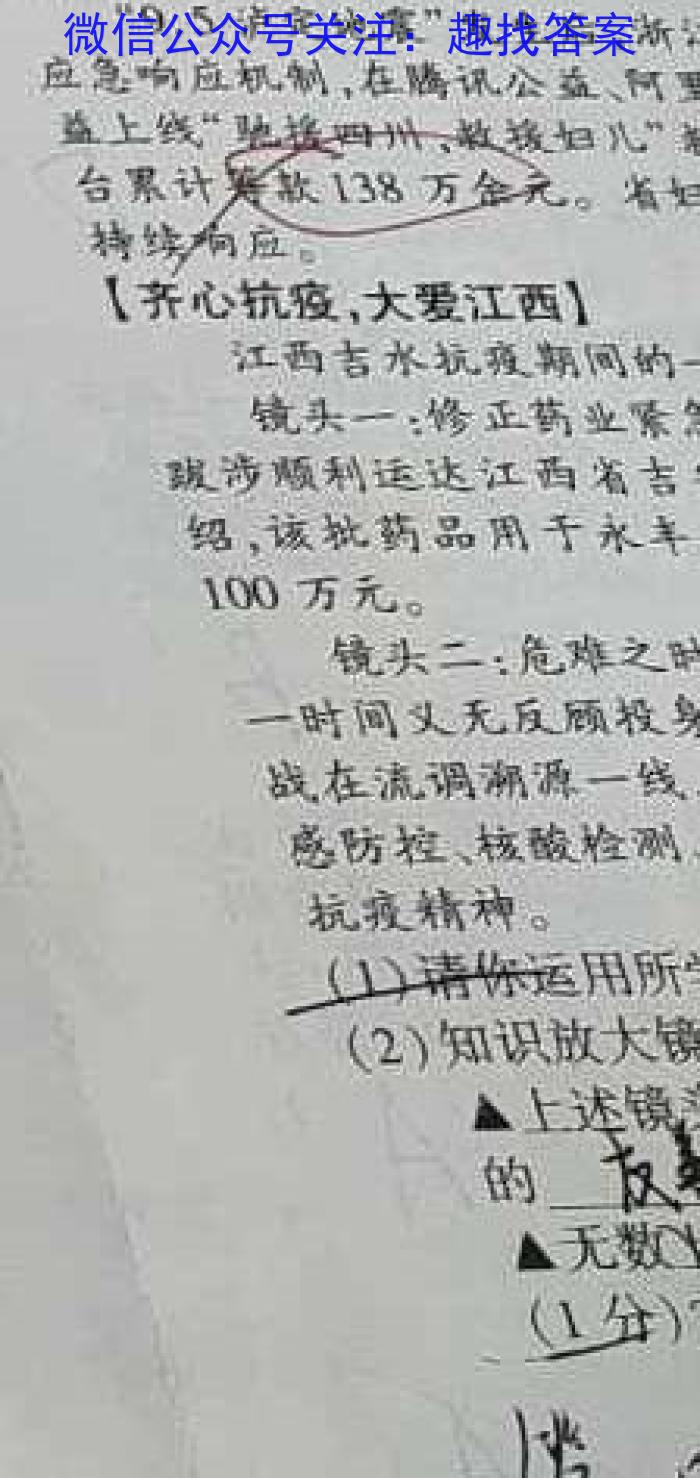 微信公众号关注：趣找答案
应急响应机制,在腾讯公益、阿里
益上线“驰援四川,救援妇儿”
台累计筹款138万余元。省妇
持续响应。
【齐心抗疫,大爱江西】
江西吉水抗疫期间的一
镜头一:修正药业紧急
跋涉顺利运达江西省吉
绍,该批药品用于永丰
100万元。
镜头二:危难之时
一时间义无反顾投身
战在流调溯源一线
感防控、核酸检测、
抗疫精神。
(1)请你运用所学
(2)知识放大镜
▲上述镜
的
▲无数
(1分)